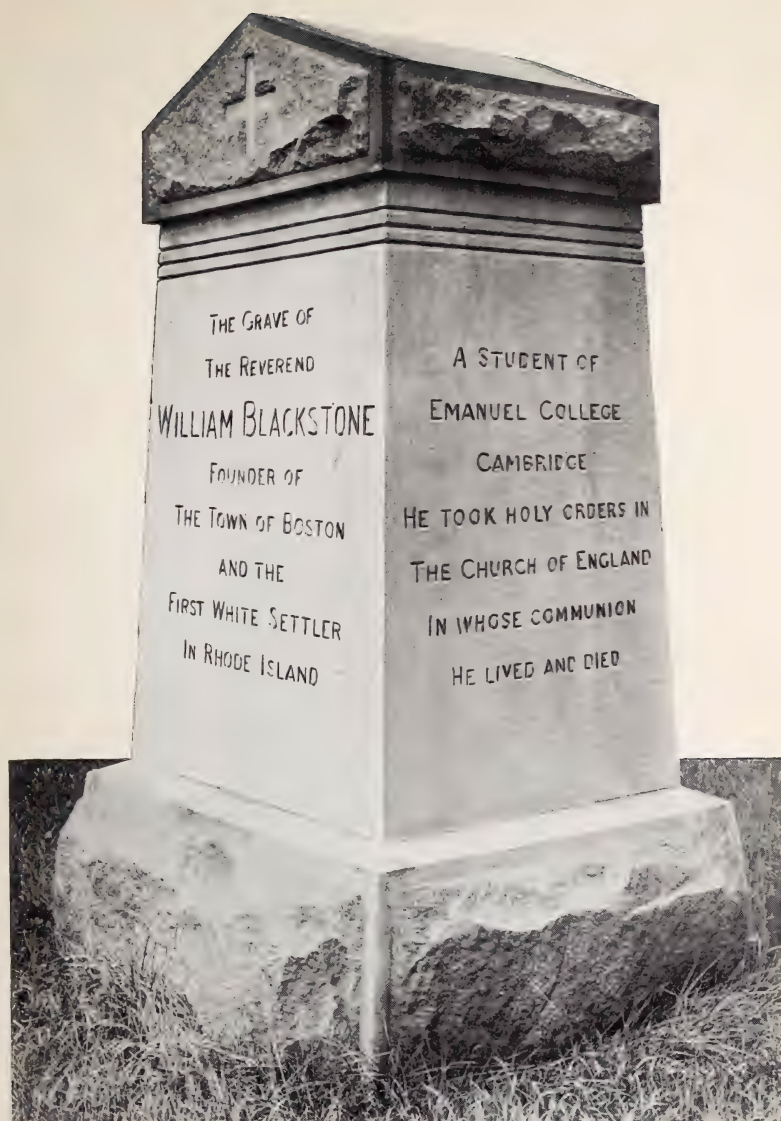 The Grave of
The Reverend
William Blackstone
Founder of
The Town of Boston
and the
First White Settler
In Rhode Island
A Student of
Emanuel College
Cambridge
He took holy orders in
The Church of England
In whose communion
He lived and died